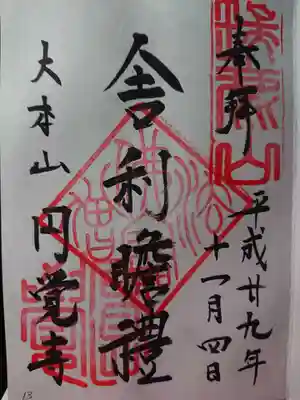 奉拝
平成廿九年
十一月四日
舎利瞻禮
大本山 円覚寺
13